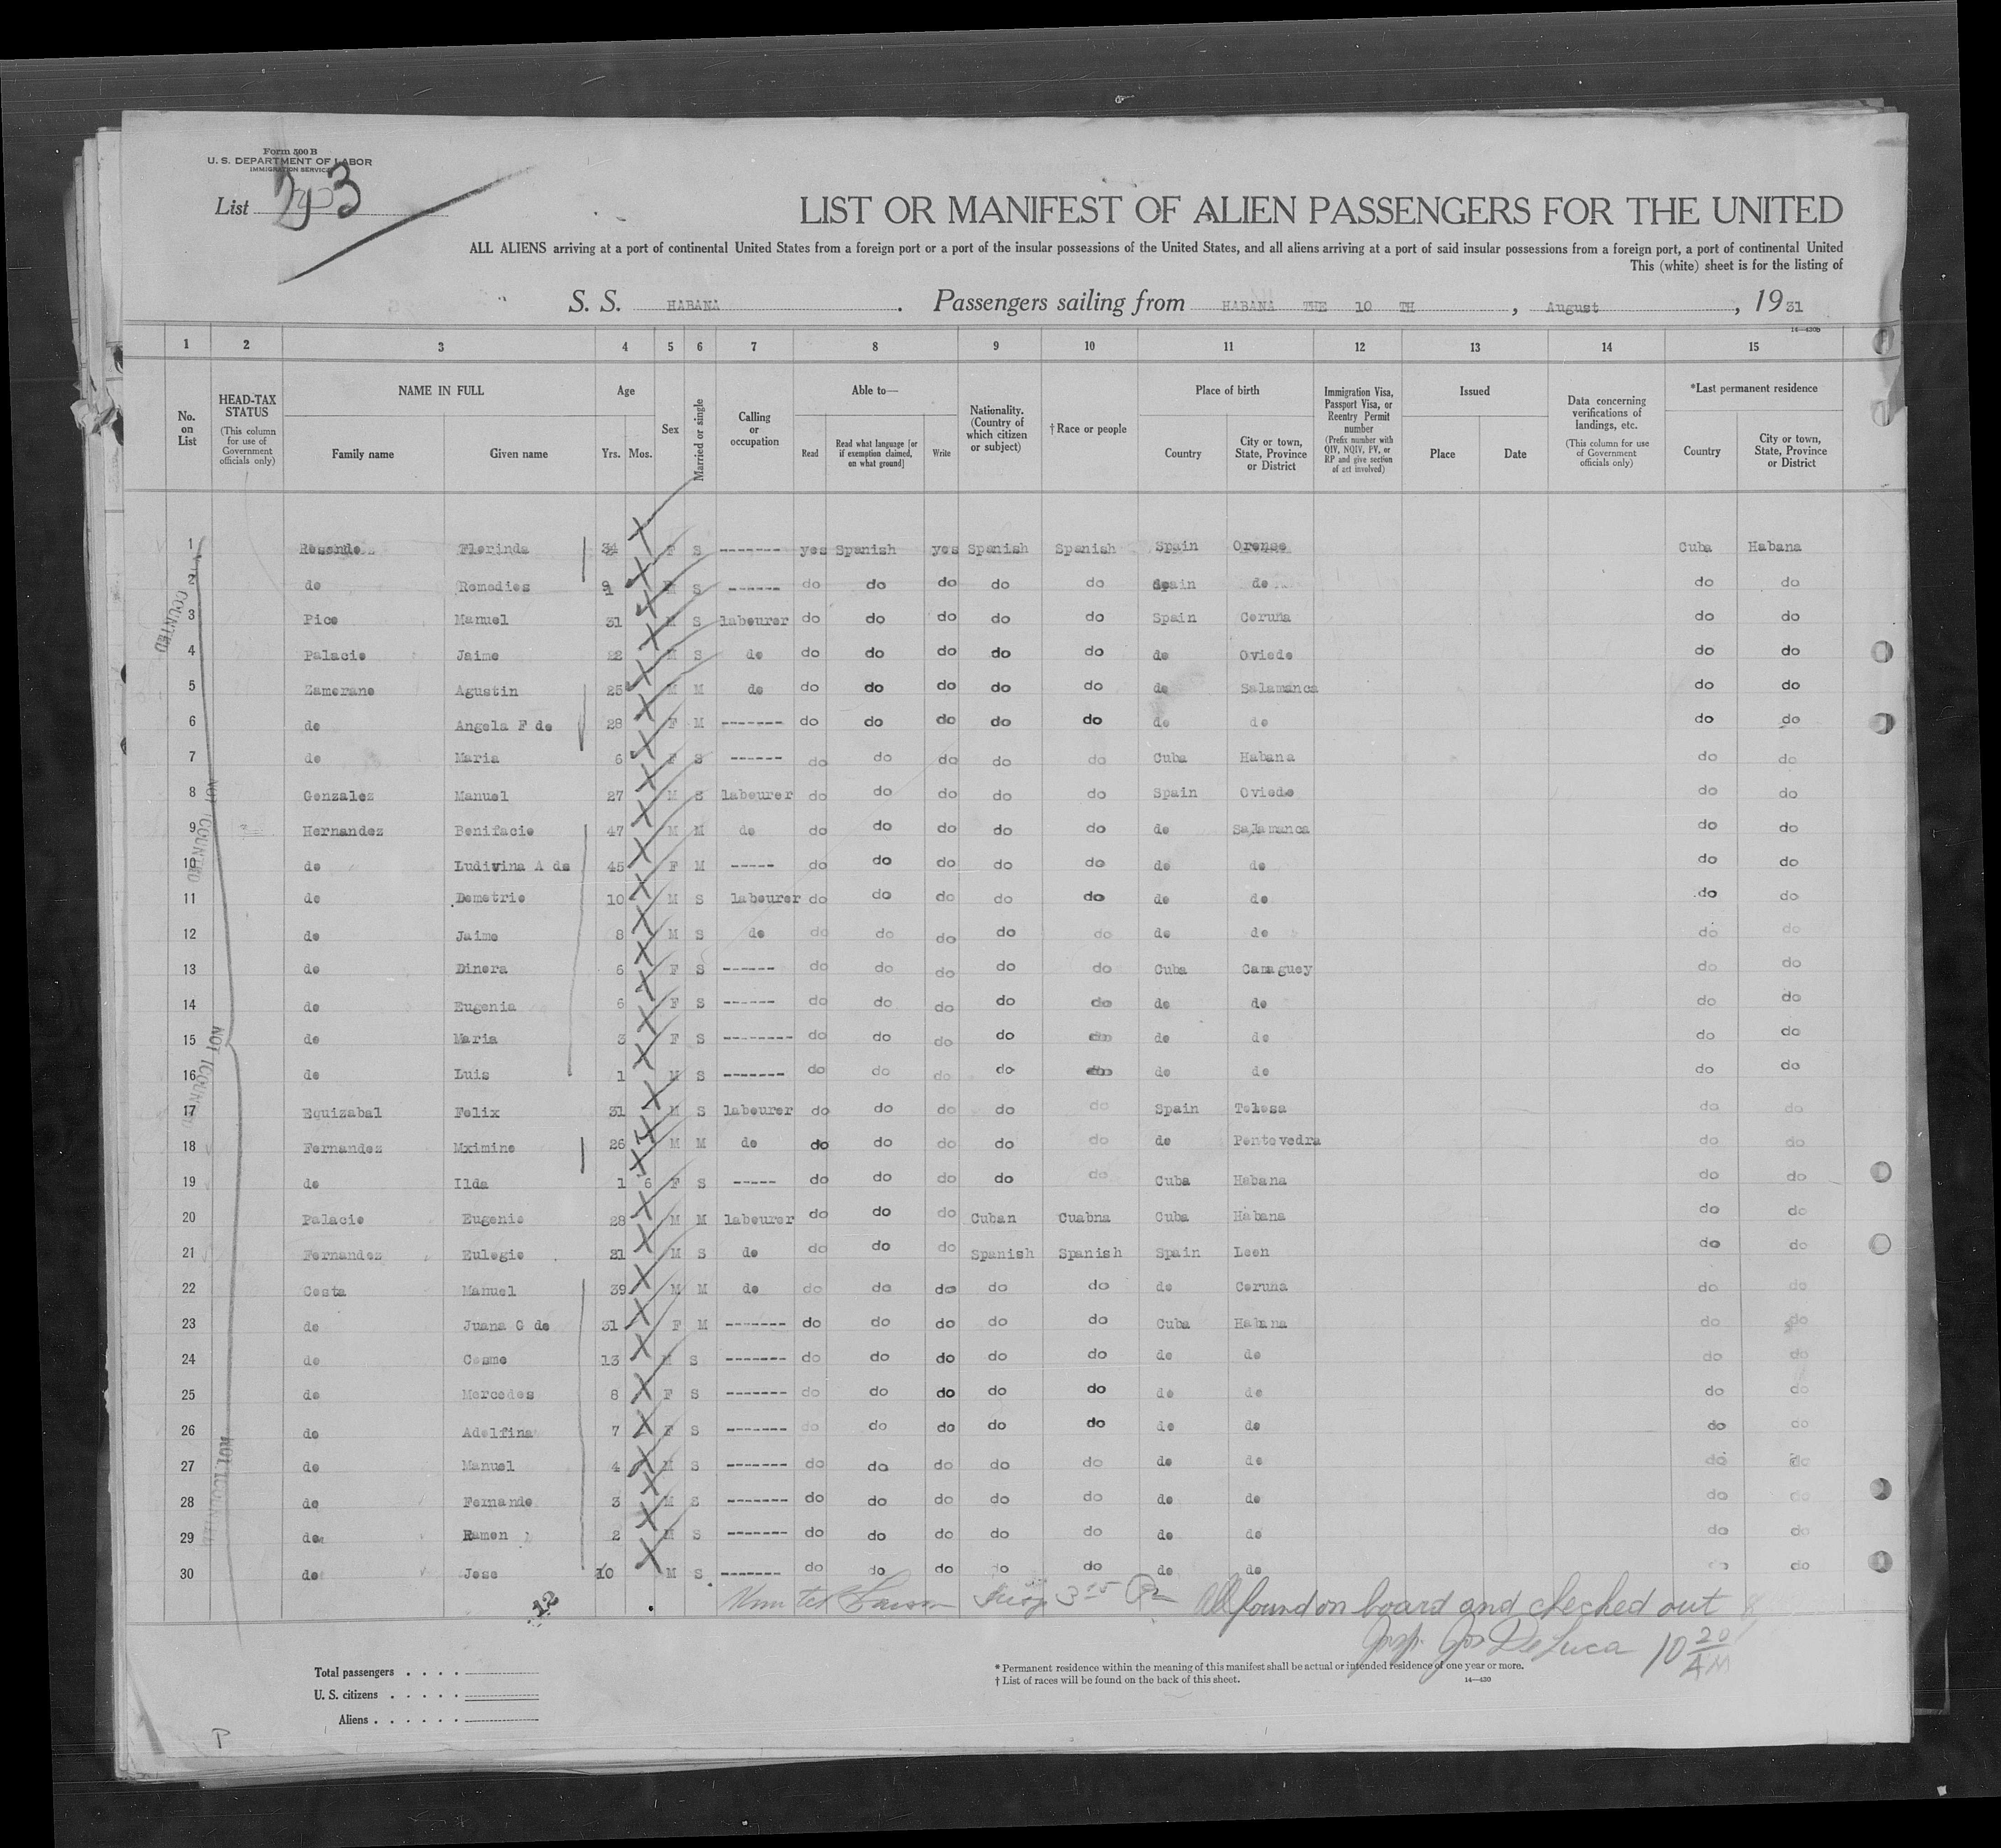 Form 500 B
U. S. DEPARTMENT OF LABOR
IMMIGRATION SERVICE
List 203
LIST OR MANIFEST OF ALIEN PASSENGERS FOR THE UNITED
ALL ALIENS arriving at a port of continental United States from a foreign port or a port of the insular possessions of the United States, and all aliens arriving at a port of said insular possessions from a foreign port, a port of continental United
This (white) sheet is for the listing of
S. S. HABANA. Passengers sailing from HABANA THE 10 TH, August, 1931
14—430b
1 2 3 4 5 6 7 8 9 10 11 12 13 14 15
No. on List
HEAD-TAX STATUS (This column for use of Government officials only)
NAME IN FULL Family name Given name
Age Yrs. Mos.
Sex
Married or single
Calling or occupation
Able to— Read Read what language [or if exemption claimed, on what ground] Write
Nationality. (Country of which citizen or subject)
†Race or people
Place of birth Country City or town, State, Province or District
Immigration Visa, Passport Visa, or Reentry Permit number (Prefix number with QIV, NQIV, PV, or RP and give section of act involved)
Issued Place Date
Data concerning verifications of landings, etc. (This column for use of Government officials only)
*Last permanent residence Country City or town, State, Province or District
1 Florinda 34 F S ------- yes Spanish yes Spanish Spanish Spain Orense Cuba Habana
2 do Remedies S ------ do do do do do Spain do do do
3 Pico Manuel 31 M S labourer do do do do do Spain Coruña do do
4 Palacio Jaime 22 M S do do do do do do do Oviedo do do
5 Zamorano Agustin 25 M M do do do do do do do Salamanca do do
6 do Angela F de 28 F M ------- do do do do do do do do do
7 do Maria 6 F S ------ do do do do do Cuba Habana do do
8 Gonzalez Manuel 27 M S labourer do do do do do Spain Oviedo do do
9 Hernandez Bonifacio 47 M M do do do do do do do Salamanca do do
10 do Ludivina A de 45 F M ----- do do do do do do do do do
11 do Demetrio 10 M S labourer do do do do do do do do do
12 do Jaime 8 M S do do do do do do do do do do
13 do Dinora 6 F S ------ do do do do do Cuba Camaguey do do
14 do Eugenia 6 F S ------ do do do do do do do do do
15 do Maria 3 F S -------- do do do do do do do do do
16 do Luis 1 M S ------- do do do do do do do do do
17 Equizabal Felix 31 M S labourer do do do do do Spain Tolosa do do
18 Fernandez Mximino 26 M M do do do do do do do Pontevedra do do
19 do Ilda 1 6 F S ----- do do do do do Cuba Habana do do
20 Palacio Eugenio 28 M M labourer do do do Cuban Cuabna Cuba Habana do do
21 Fernandez Eulogio 21 M S do do do do Spanish Spanish Spain Leon do do
22 Costa Manuel 39 M M do do do do do do do Coruna do do
23 do Juana G de 31 F M ------- do do do do do Cuba Habana do do
24 do Cosme 13 M S ------- do do do do do do do do do
25 do Mercedes 8 F S ------- do do do do do do do do do
26 do Adolfina 7 F S ------- do do do do do do do do do
27 do Manuel 4 M S ------- do do do do do do do do do
28 do Fernando 3 M S ------- do do do do do do do do do
29 do Ramon 2 M S ------- do do do do do do do do do
30 do Jose 10 M S ------- do do do do do do do do do
NOT COUNTED
NOT COUNTED
NOT COUNTED
NOT COUNTED
12
Insp 3 15 Pm All found on board and checked out
Insp. Jos DeLuca 10 20 AM
Total passengers . . . .
U. S. citizens . . . . .
Aliens . . . . . .
* Permanent residence within the meaning of this manifest shall be actual or intended residence of one year or more.
† List of races will be found on the back of this sheet.
14—430
P